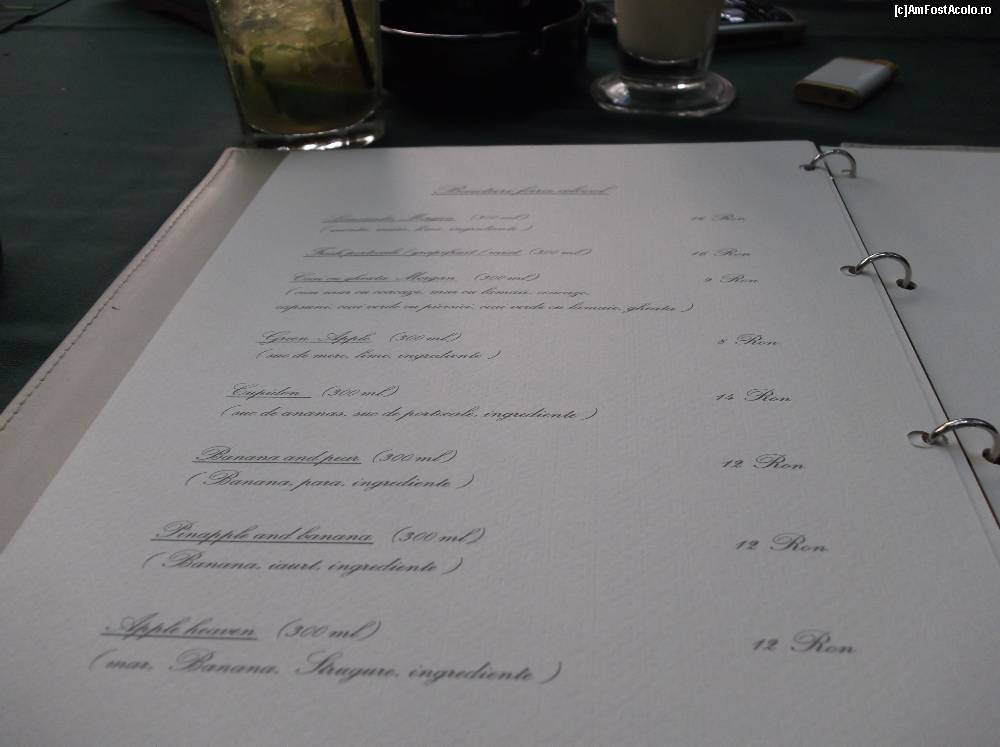 [c]AmFostAcolo.ro
Bauturi fara alcool
Limonada Morgan (300 ml) 16 Ron
Fresh portocale / grapefruit / mixt (300 ml) 16 Ron
Ceai cu gheata Morgan (300 ml) 9 Ron
cu lamaie,
capsune, ceai verde cu piersici, ceai verde cu lamaie, gheata )
Green Apple (300 ml) 8 Ron
( suc de mere, lime, ingrediente )
Cupidon (300 ml) 14 Ron
( suc de ananas, suc de portocale, ingrediente )
Banana and pear (300 ml) 12 Ron
( Banana, para, ingrediente )
Pinapple and banana (300 ml) 12 Ron
( Banana, iaurt, ingrediente )
Apple heaven (300 ml) 12 Ron
( mar, Banana, Strugure, ingrediente )